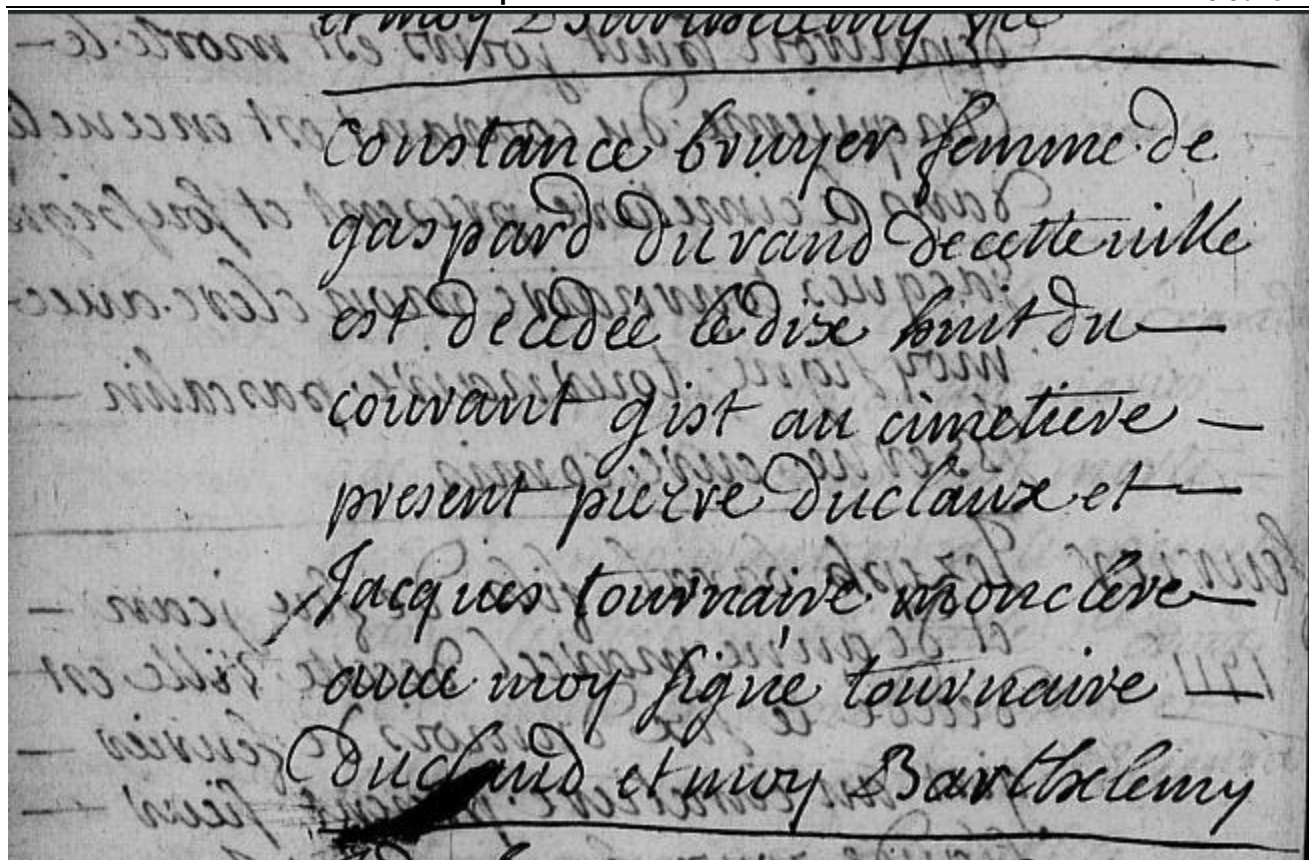 et moy Barthelemy
Constance bruyer femme de
gaspard Durand de cette ville
est decedée le dixe huit du
couvant gist au cimetiere
present pierre Duclaux et
Jacques tournaire mon clerc
avec moy signé tournaire
Duclaud et moy Barthelemy